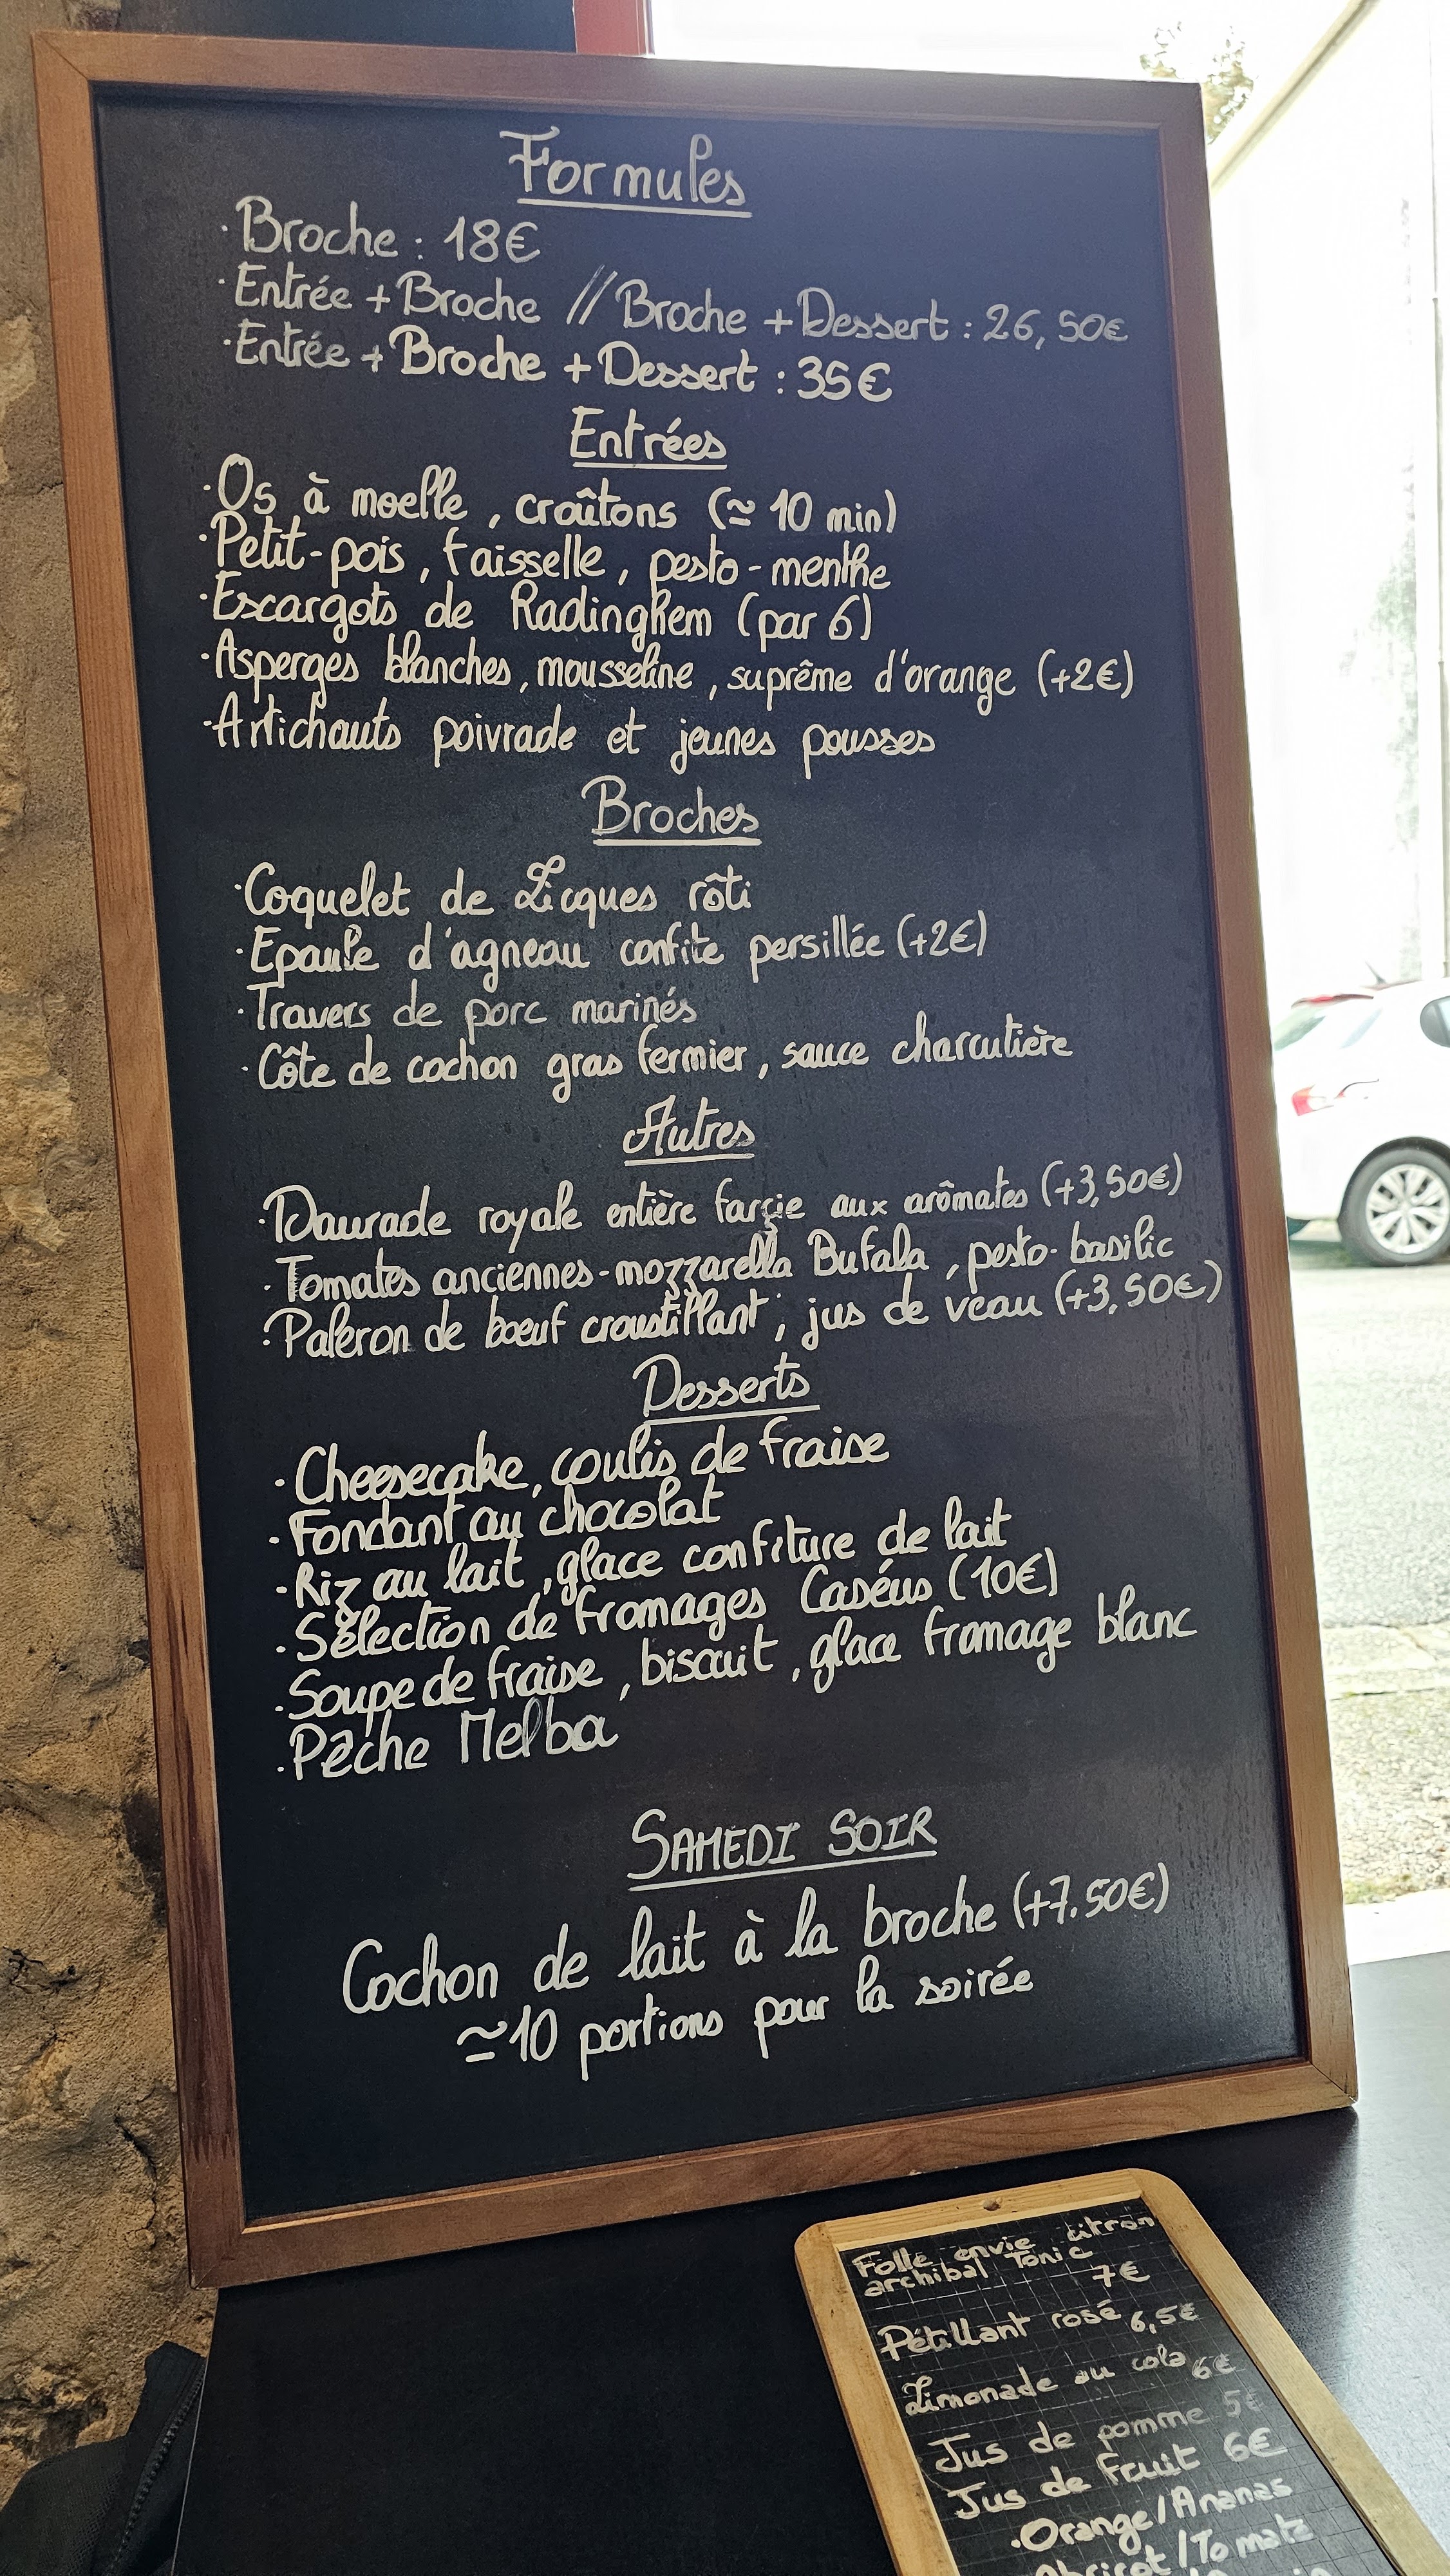 Formules
·Broche : 18€
·Entrée + Broche // Broche + Dessert : 26,50€
·Entrée + Broche + Dessert : 35€
Entrées
·Os à moelle, croûtons (≃ 10 min)
·Petit-pois, faisselle, pesto-menthe
·Escargots de Radinghem (par 6)
·Asperges blanches, mousseline, suprême d'orange (+2€)
·Artichauts poivrade et jeunes pousses
Broches
·Coquelet de Licques rôti
·Epaule d'agneau confite persillée (+2€)
·Travers de porc marinés
·Côte de cochon gras fermier, sauce charcutière
Autres
·Daurade royale entière farçie aux arômates (+3,50€)
·Tomates anciennes-mozzarella Bufala, pesto-basilic
·Paleron de bœuf croustillant, jus de veau (+3,50€)
Desserts
·Cheesecake, coulis de fraise
·Fondant au chocolat
·Riz au lait, glace confiture de lait
·Sélection de fromages Caséus (10€)
·Soupe de fraise, biscuit, glace fromage blanc
·Pêche Melba
SAMEDI SOIR
Cochon de lait à la broche (+7.50€)
≃10 portions pour la soirée
Folle envie citron
archibal Tonic
7€
Pétillant rosé 6,5€
Limonade au cola 6€
Jus de pomme 5€
Jus de Fruit 6€
·Orange/Ananas
Abricot/Tomate